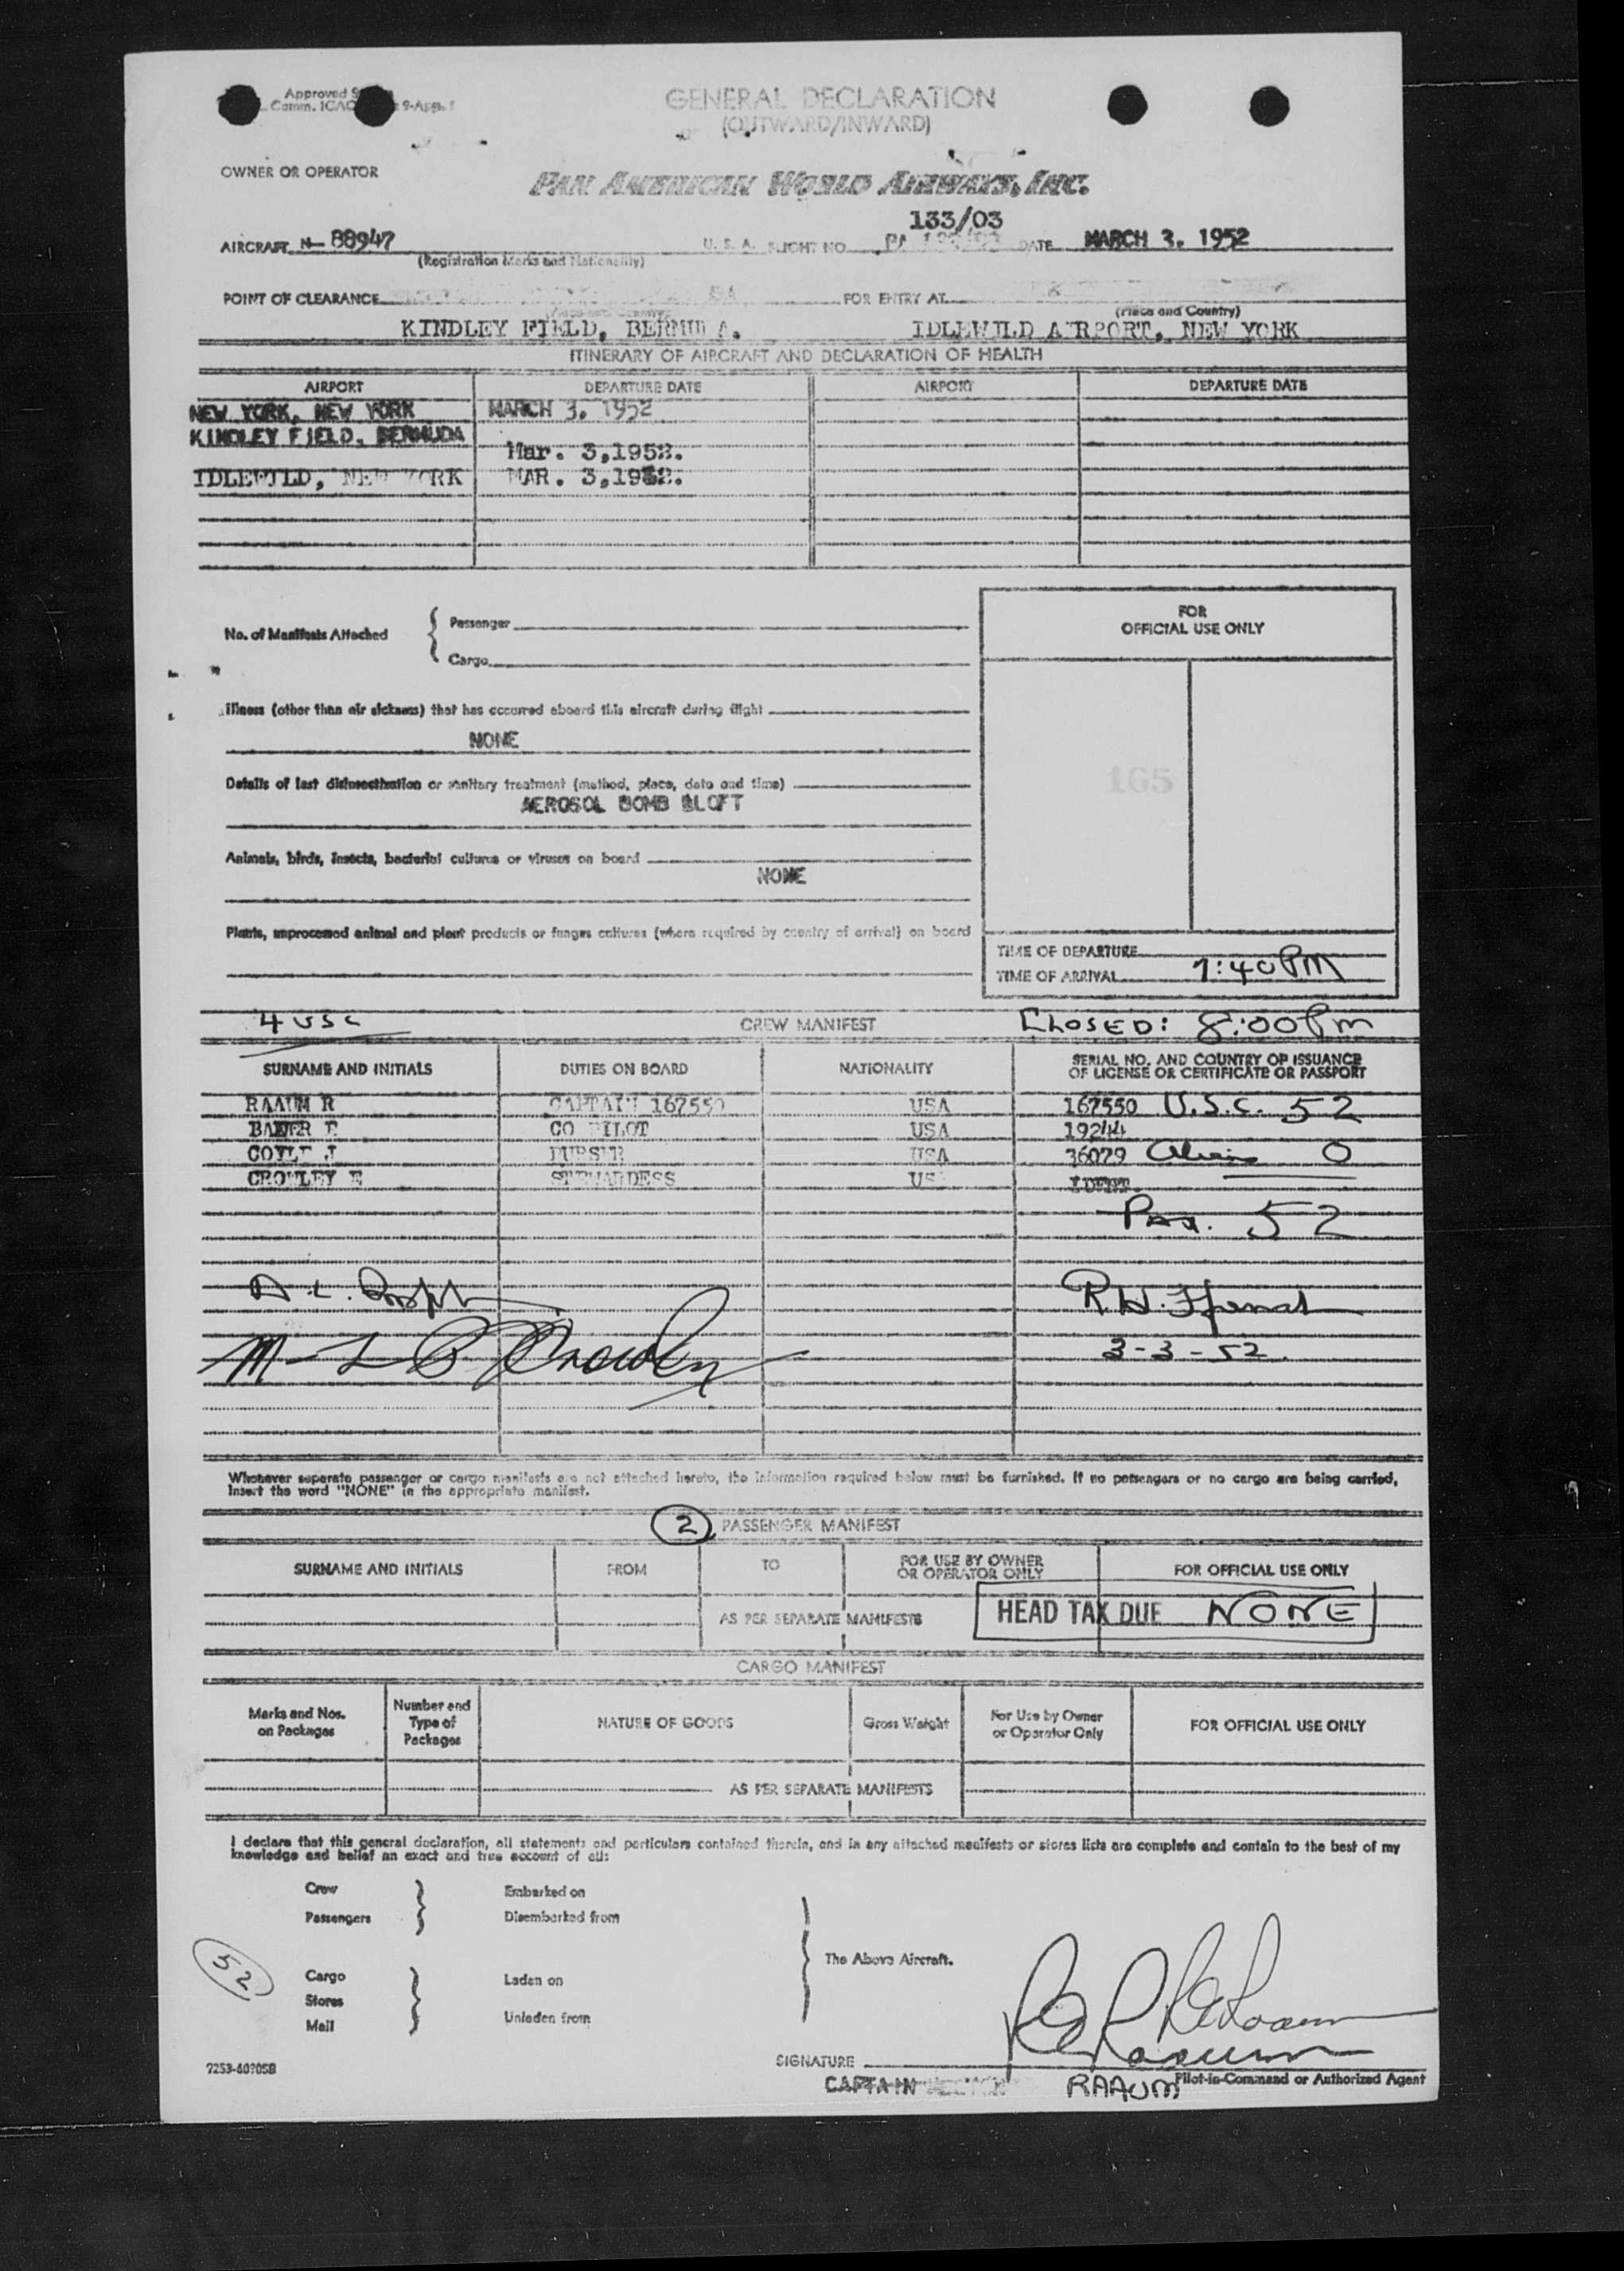 Approved
Comm. ICAO 9-App. 1
GENERAL DECLARATION
(OUTWARD/INWARD)
OWNER OR OPERATOR
PAN AMERICAN WORLD AIRWAYS, INC.
133/03
AIRCRAFT N- 88947 U. S. A. FLIGHT NO. PA DATE MARCH 3, 1952
(Registration Marks and Nationality)
POINT OF CLEARANCE FOR ENTRY AT
(Place and Country)
KINDLEY FIELD, BERMUDA. IDLEWILD AIRPORT, NEW YORK
ITINERARY OF AIRCRAFT AND DECLARATION OF HEALTH
AIRPORT DEPARTURE DATE AIRPORT DEPARTURE DATE
NEW YORK, NEW YORK MARCH 3, 1952
KINDLEY FIELD, BERMUDA
Mar. 3,1952.
IDLEWILD, NEW YORK MAR. 3,1952.
FOR
OFFICIAL USE ONLY
No. of Manifests Attached { Passenger
Cargo
Illness (other than air sickness) that has occurred aboard this aircraft during flight
NONE
165
Details of last disinsectization or sanitary treatment (method, place, date and time)
AEROSOL BOMB ALOFT
Animals, birds, insects, bacterial cultures or viruses on board
NONE
Plants, unprocessed animal and plant products or fungus cultures (where required by country of arrival) on board
TIME OF DEPARTURE
TIME OF ARRIVAL 7:40 PM
4 USC CREW MANIFEST CLOSED: 8:00 Pm
SURNAME AND INITIALS DUTIES ON BOARD NATIONALITY SERIAL NO. AND COUNTRY OF ISSUANCE
OF LICENSE OR CERTIFICATE OR PASSPORT
RAAUM R CAPTAIN 167550 USA 167550 U.S.C. 52
CO PILOT USA
COYLE J PURSER USA 36079 Aliens 0
CROWLEY E STEWARDESS US
Pax. 52
3-3-52
Whenever separate passenger or cargo manifests are not attached hereto, the information required below must be furnished. If no passengers or no cargo are being carried,
insert the word "NONE" in the appropriate manifest.
2 PASSENGER MANIFEST
SURNAME AND INITIALS FROM TO FOR USE BY OWNER
OR OPERATOR ONLY FOR OFFICIAL USE ONLY
AS PER SEPARATE MANIFESTS HEAD TAX DUE NONE
CARGO MANIFEST
Marks and Nos.
on Packages Number and
Type of
Packages NATURE OF GOODS Gross Weight For Use by Owner
or Operator Only FOR OFFICIAL USE ONLY
AS PER SEPARATE MANIFESTS
I declare that this general declaration, all statements and particulars contained therein, and in any attached manifests or stores lists are complete and contain to the best of my
knowledge and belief an exact and true account of all:
Crew Embarked on
Passengers Disembarked from
The Above Aircraft.
52
Cargo Laden on
Stores
Mail Unladen from
SIGNATURE
7253-40705B
CAPTAIN RAAUM Pilot-in-Command or Authorized Agent